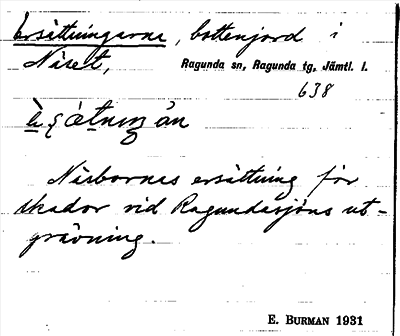 Ersättningarna, bottenjord i
Näset, Ragunda sn, Ragunda tg, Jämtl. l.
638
Näsbornas ersättning för
skador vid Ragundasjöns ut-
grävning.
E. BURMAN 1931